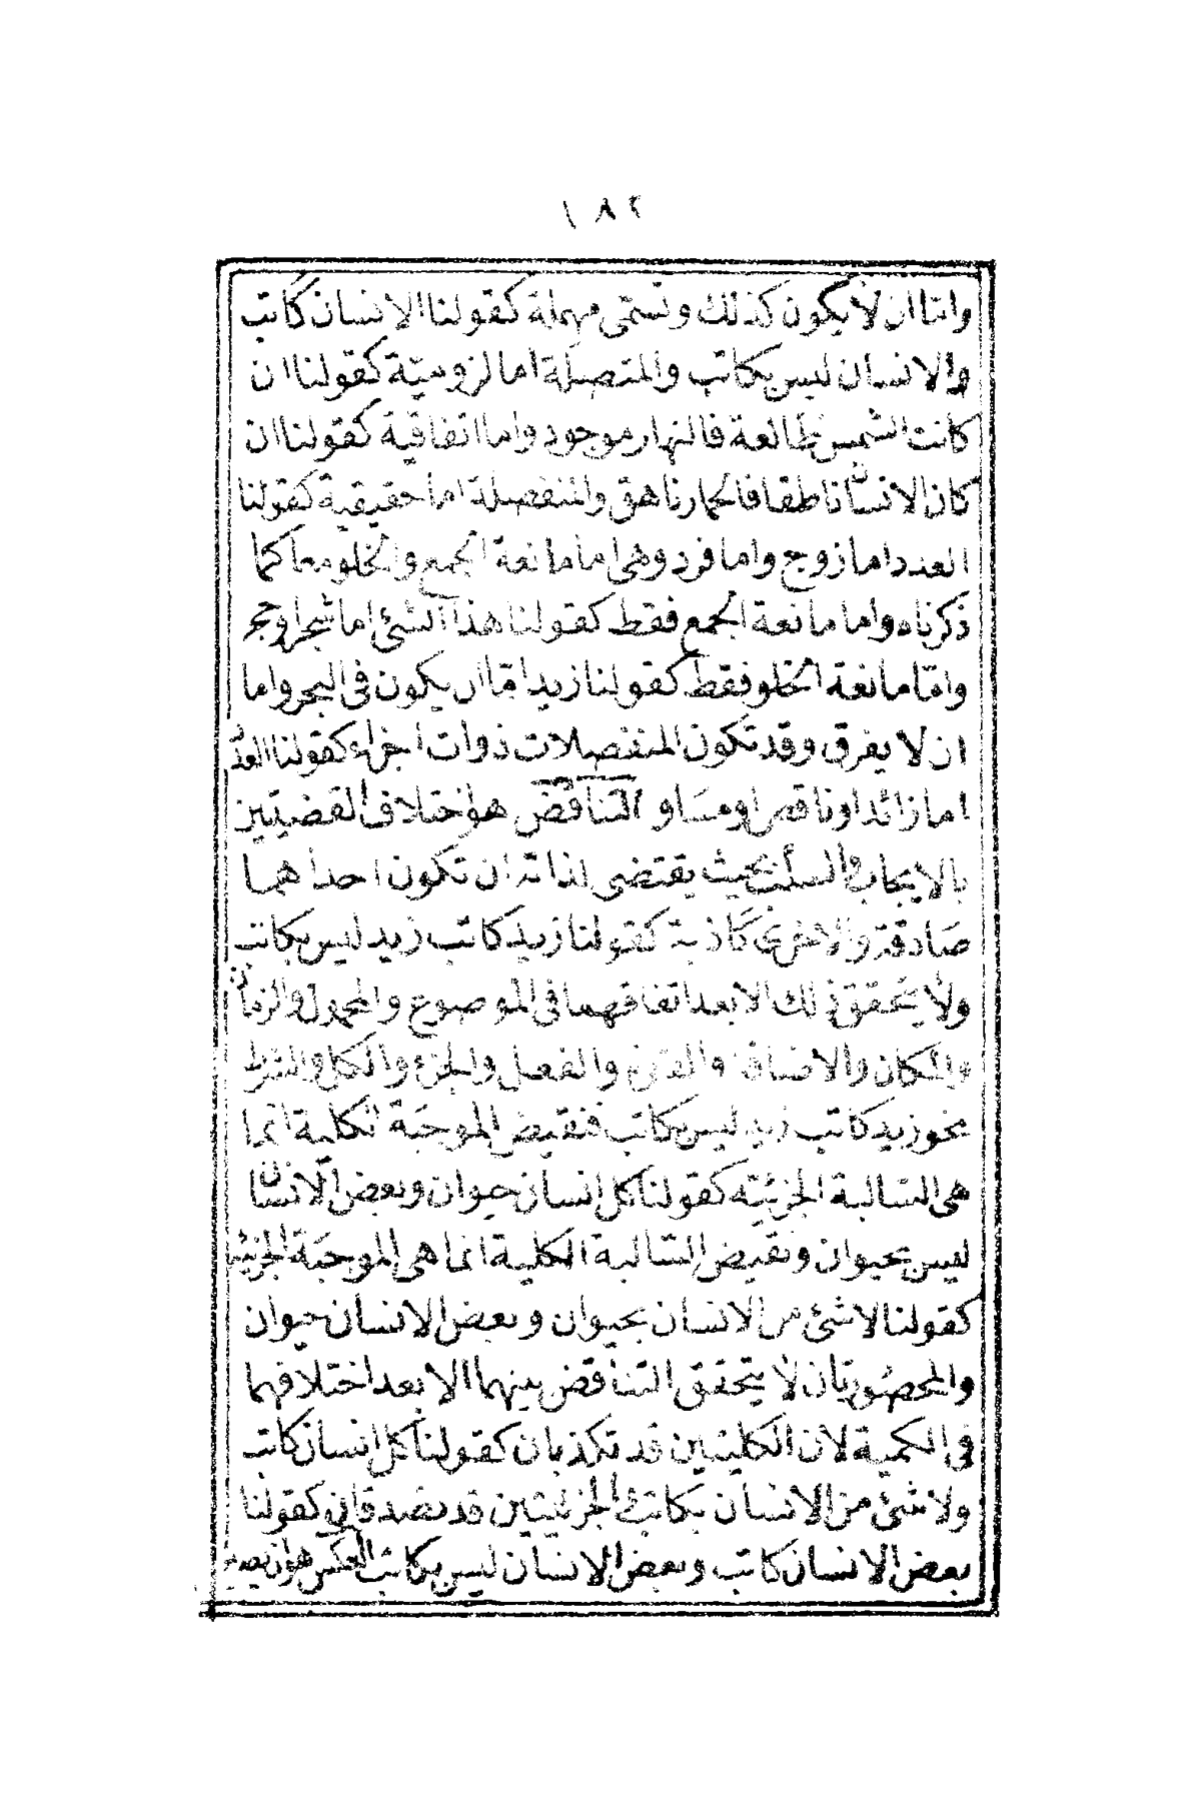 ١٨٢
واما ان لا يكون كذلك وتسمى مهملة كقولنا الانسان كاتب
والانسان ليس بكاتب والمتصلة اما لزومية كقولنا ان
كانت الشمس طالعة فالنهار موجود واما اتفاقية كقولنا ان
كان الانسان ناطقا فالحمار ناهق والمنفصلة اما حقيقية كقولنا
العدد اما زوج واما فرد وهى اما مانعة الجمع والخلو معا كما
ذكرناه واما مانعة الجمع فقط كقولنا هذا الشئ اما شجر او حجر
واما مانعة الخلو فقط كقولنا زيد اما ان يكون فى البحر واما
ان لا يغرق وقد تكون المنفصلات ذوات اجزاء كقولنا العدد
اما زائد او ناقص او مساو التناقض هو اختلاف القضيتين
بالايجاب والسلب بحيث يقتضى لذاته ان تكون احداهما
صادقة والاخرى كاذبة كقولنا زيد كاتب زيد ليس بكاتب
ولا يتحقق ذلك الا بعد اتفاقهما فى الموضوع والمحمول والزمان
والمكان والاضافة والقوة والفعل والجزء والكل والشرط
نحو زيد كاتب زيد ليس بكاتب فنقيض الموجبة الكلية انما
هى السالبة الجزئية كقولنا كل انسان حيوان وبعض الانسان
ليس بحيوان ونقيض السالبة الكلية انما هى الموجبة الجزئية
كقولنا لا شئ من الانسان بحيوان وبعض الانسان حيوان
والمحصورتان لا يتحقق التناقض بينهما الا بعد اختلافهما
فى الكمية لان الكليتين قد تكذبان كقولنا كل انسان كاتب
ولا شئ من الانسان بكاتب والجزئيتين قد تصدقان كقولنا
بعض الانسان كاتب وبعض الانسان ليس بكاتب العكس هو ان يصير